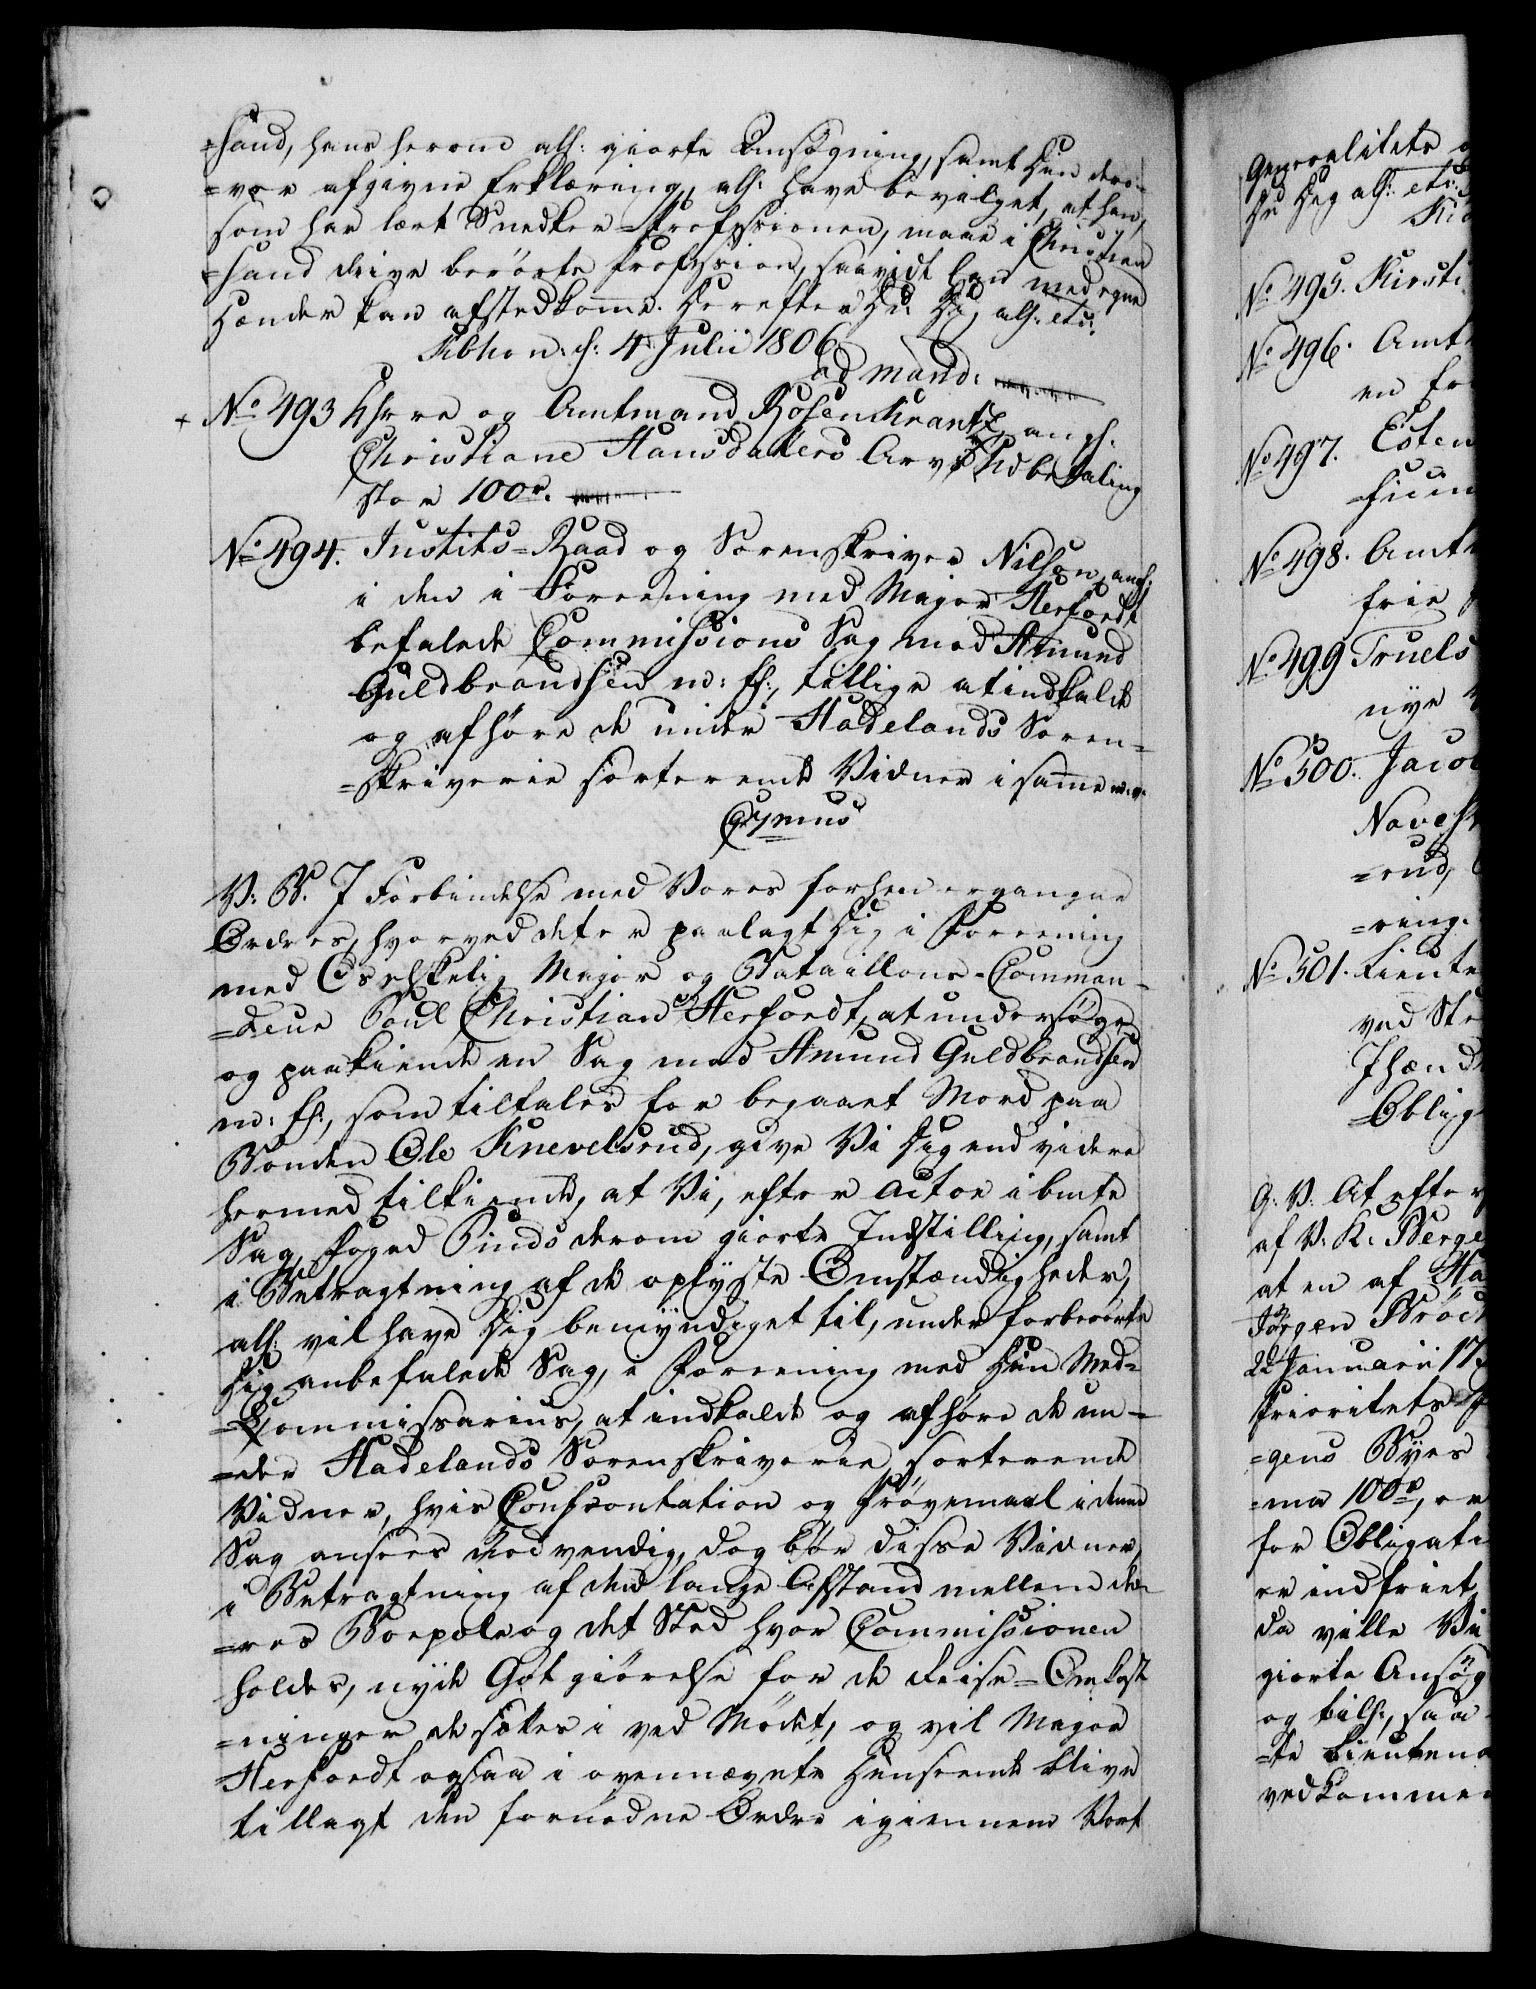 =sand, hans herom all: giorte Ansøgning, samt Din der=
=ver afgivne Erklæring, all: have bevilget, at han,
som har lært Snedker=Professionen, maae i Christian
=sand drive berørte Profession, saavidt han med egne
Hænder kan afstedkomme. Herefter Du Dig all: etc:
Kbhvn: d: 4 Julii 1806
ad mand:
No 493 Khrre og Amtmand Rosenkrantz, angl:
Christiane Hansdatters Arvs Udbetaling
stor 100r.
No 494. Justits=Raad og Sorenskriver Nilson, angl:
i den i Foreening med Major Herfordt
befalede Commissions Sag mod Amund
Guldbrandsen m: fl:, tillige at indkalde
og afhøre de under Hadelands Soren=
=skriverie sorterende Vidner i samme
V: G. I Forbindelse med Vores forhen ergangne
Ordres, hvorved det er paalagt Dig i Foreening
med Os elskelig Major og Bataillons=Comman=
=deur Poul Christian Herfordt, at undersøge
og paakiende en Sag mod Amund Guldbrandsen
m: fl:, som tiltales for begaaet Mord paa
Bonden Ole Knevelsrud, give Vi Dig end videre
hermed tilkiende, at Vi, efter Actor i bmte
Sag, Foged Pinds derom giorte Indstilling, samt
i Betragtning af de oplyste Omstændigheder,
all: vil have Dig bemyndiget til, under forberørte
Dig anbefalede Sag, i Foreening med Din Med=
=Commissarius, at indkalde og afhøre de un=
=der Hadelands Sorenskriverie sorterende
Vidner, hvis Confrontation og Prøvemaal i denne
Sag ansees nødvendig, dog bør disse Vidner,
i Betragtning af den lange Afstand mellem de=
=res Boepæle og det Sted hvor Commissionen
holdes, nyde Godtgiørelse for de Reise=Omkost
=ninger de sættes i ved Mødet, og vil Major
Herfordt ogsaa i ovennævnte Henseende blive
tillagt den fornødne Ordre igiennem Vort
Generalitets
Du Dig all: etc:
No 495. Kirsti
No 496. Amt
en for
No 497. Esten
No 498. Amt
frie
No 499 Truels
nye
No 500. Jacob
=rud,
=ring.
No 501. Lieute
ved
Ihænd
=Oblig
G: V. At efter
af V: K: Berge
at en af Ha
Jørgen Brød
22 Januarii 17
Prioritets
=gens Byes
=ma 100r, er
for Obligati
er indfriet,
da ville Vi
giorte Ansøg
og till:, saa
=te Lieutena
vedkommen